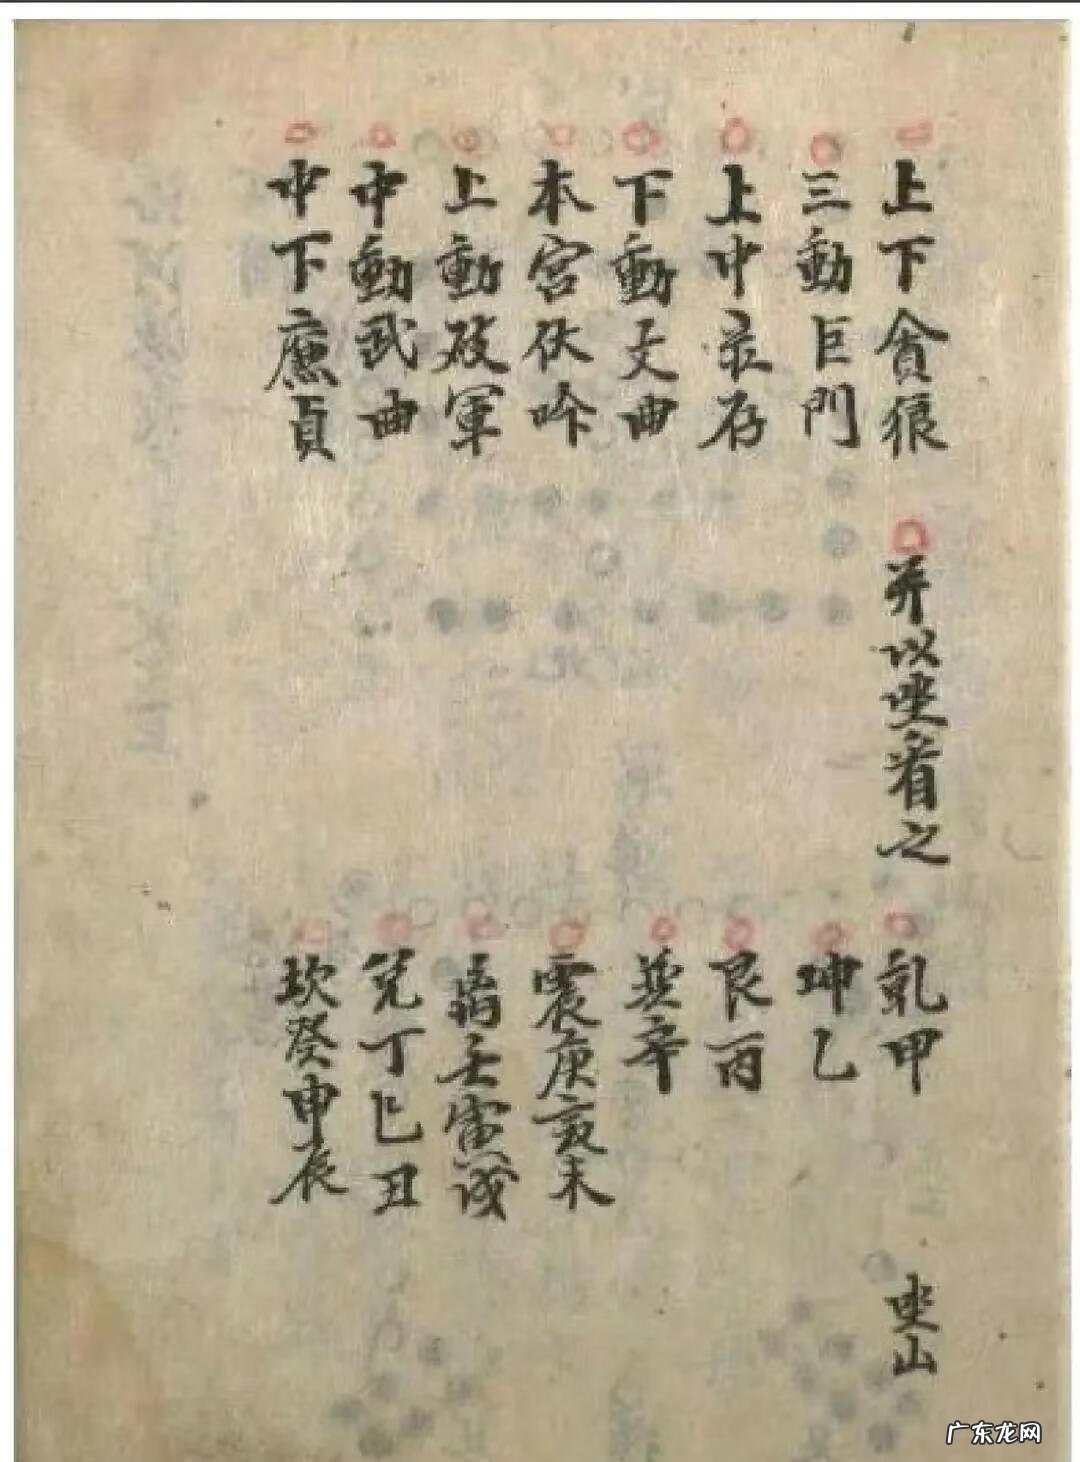 上下貪狼
三動巨門
上中录存
下動文曲
本宮伏吟
上動破軍
中動武曲
中下廉貞
并以坐看之
乾甲
坤乙
艮丙
巽辛
震庚亥未
离壬寅戌
兑丁巳丑
坎癸申辰
坐山
广东龙网